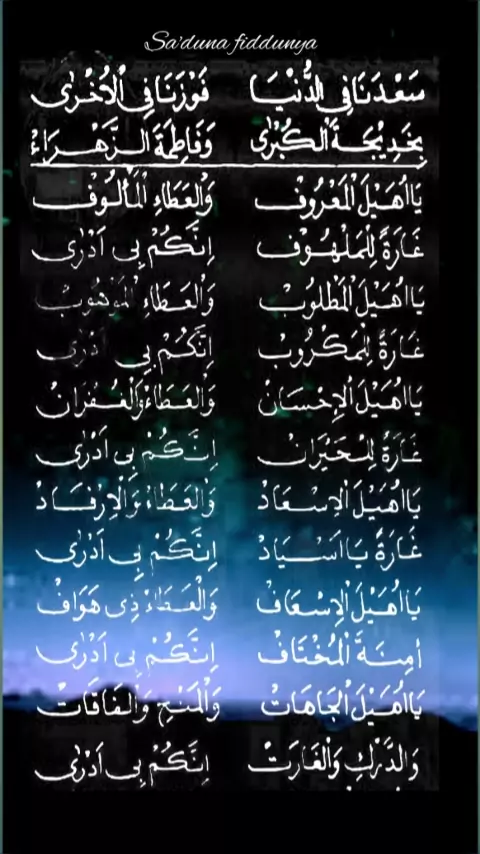 Sa'duna fiddunya
سَعْدَنَا فِي الدُّنْيَا فَوْزَنَا فِي الْاُخْرٰى
بِخَدِيْجَةَ الْكُبْرٰى وَفَاطِمَةَ الزَّهْرَاءْ
يَااُهَيْلَ الْمَعْرُوْفْ وَالْعَطَاءِ الْمَأْلُوْفْ
غَارَةً لِلْمَلْهُوْفْ اِنَّكُمْ بِى اَدْرٰى
يَااُهَيْلَ الْمَطْلُوْبْ وَالْعَطَاءِ الْمَوْهُوْبْ
غَارَةً لِلْمَكْرُوْبْ اِنَّكُمْ بِي اَدْرٰى
يَااُهَيْلَ الْاِحْسَانْ وَالْعَطَاءْ وَالْغُفْرَانْ
غَارَةً لِلْحَيْرَانْ اِنَّكُمْ بِى اَدْرٰى
يَااُهَيْلَ الْاِسْعَادْ وَالْعَطَاءْ وَالْاِرْفَادْ
غَارَةً يَا اَسْيَادْ اِنَّكُمْ بِى اَدْرٰى
يَااُهَيْلَ الْاِسْعَافْ وَالْعَطَاءْ ذِى هَوَافْ
اَمِنَةَ الْمُخْتَافْ اِنَّكُمْ بِى اَدْرٰى
يَااُهَيْلَ الْجَاهَاتْ وَالْمَنْحِ وَالْفَاقَاتْ
وَالدَّرْكِ وَالْغَارَتْ اِنَّكُمْ بِى اَدْرٰى